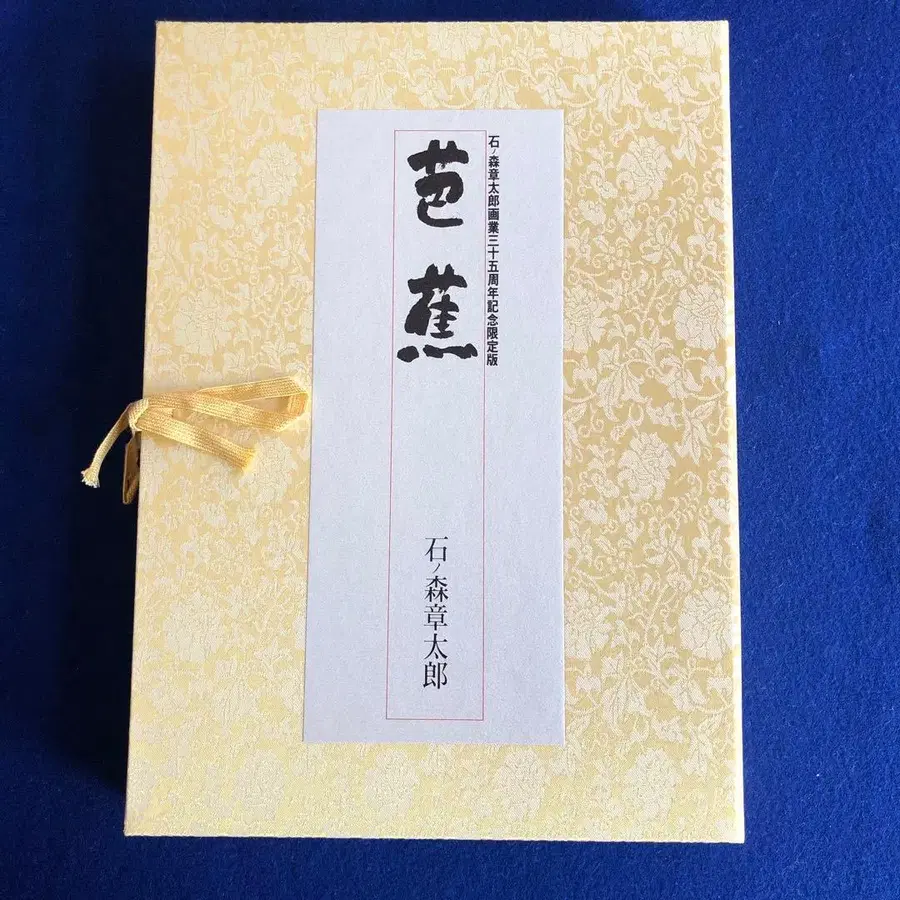 石ノ森章太郎画業三十五周年記念限定版
芭蕉
石ノ森章太郎